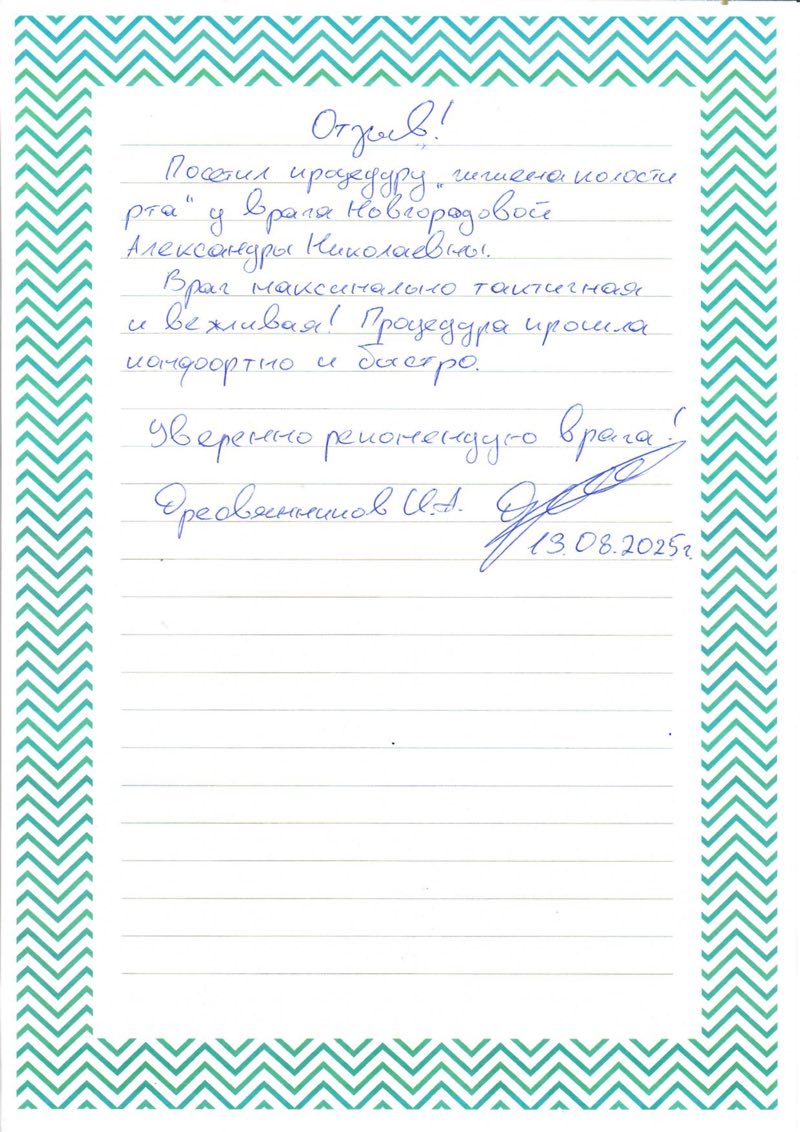 Отзыв!
Посетил процедуру „гигиена полости
рта“ у врача Новгородовой
Александры Николаевны.
Врач максимально тактичная
и вежливая! Процедура прошла
комфортно и быстро.
Уверенно рекомендую врача!
Древянников И.А.
13.08.2025г.